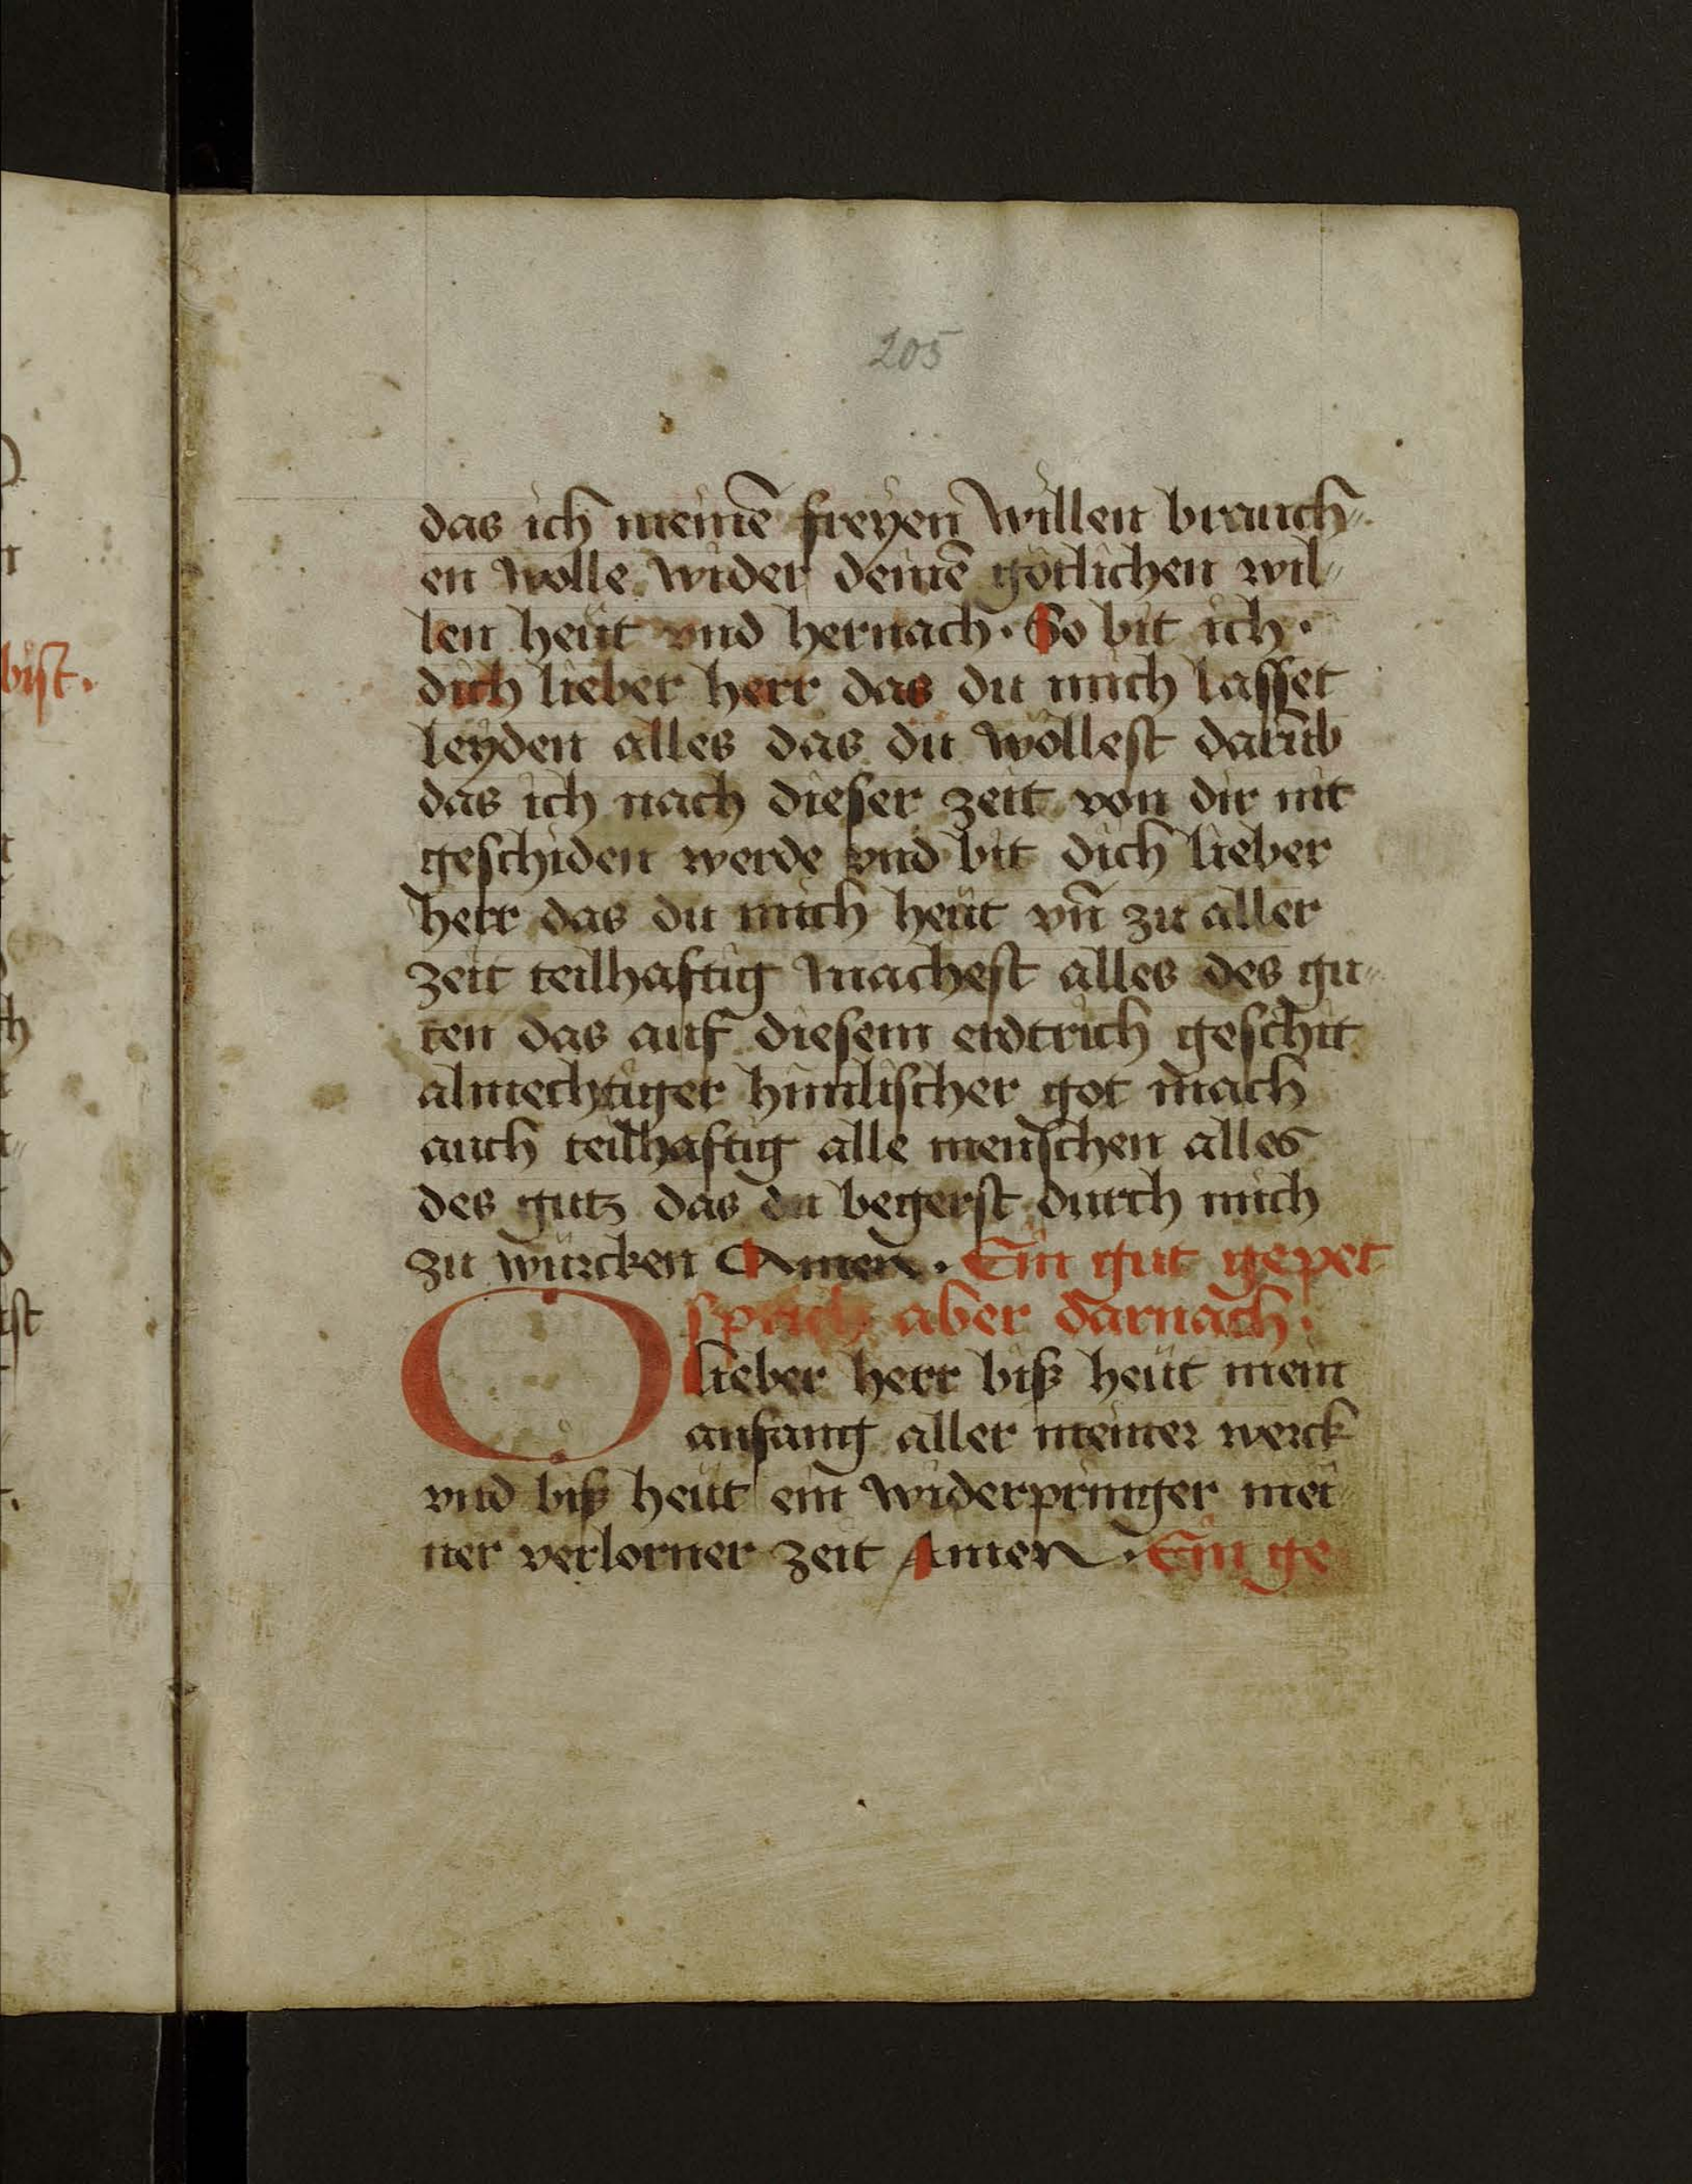 205
das ich meinē freyen willen brauch⸗
en wolle wider deinē götlichen wil⸗
len heüt vnd hernach. So bit ich.
dich lieber herr das du mich lasset
leyden alles das du wöllest darūb
das ich nach dieser zeit von dir nit
geschiden werde vnd bit dich lieber
herr das du mich heüt vn̄ zu aller
zeit teilhaftig machest alles des gu⸗
ten das auf diesem erdtrich geschit
almechtiger himlischer got mach
auch teilhaftig alle menschen alles
des gutz das du begerst durch mich
zu würcken Amen. Ein gut gepet
sprich aber darnach.
O lieber herr biß heüt mein
anfang aller meiner werck
vnd biß heüt ein widerpringer mei
ner verlorner zeit Amen. Ein ge
bist.